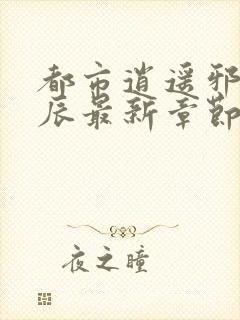 都市逍遥邪
辰最新章節
夜之瞳